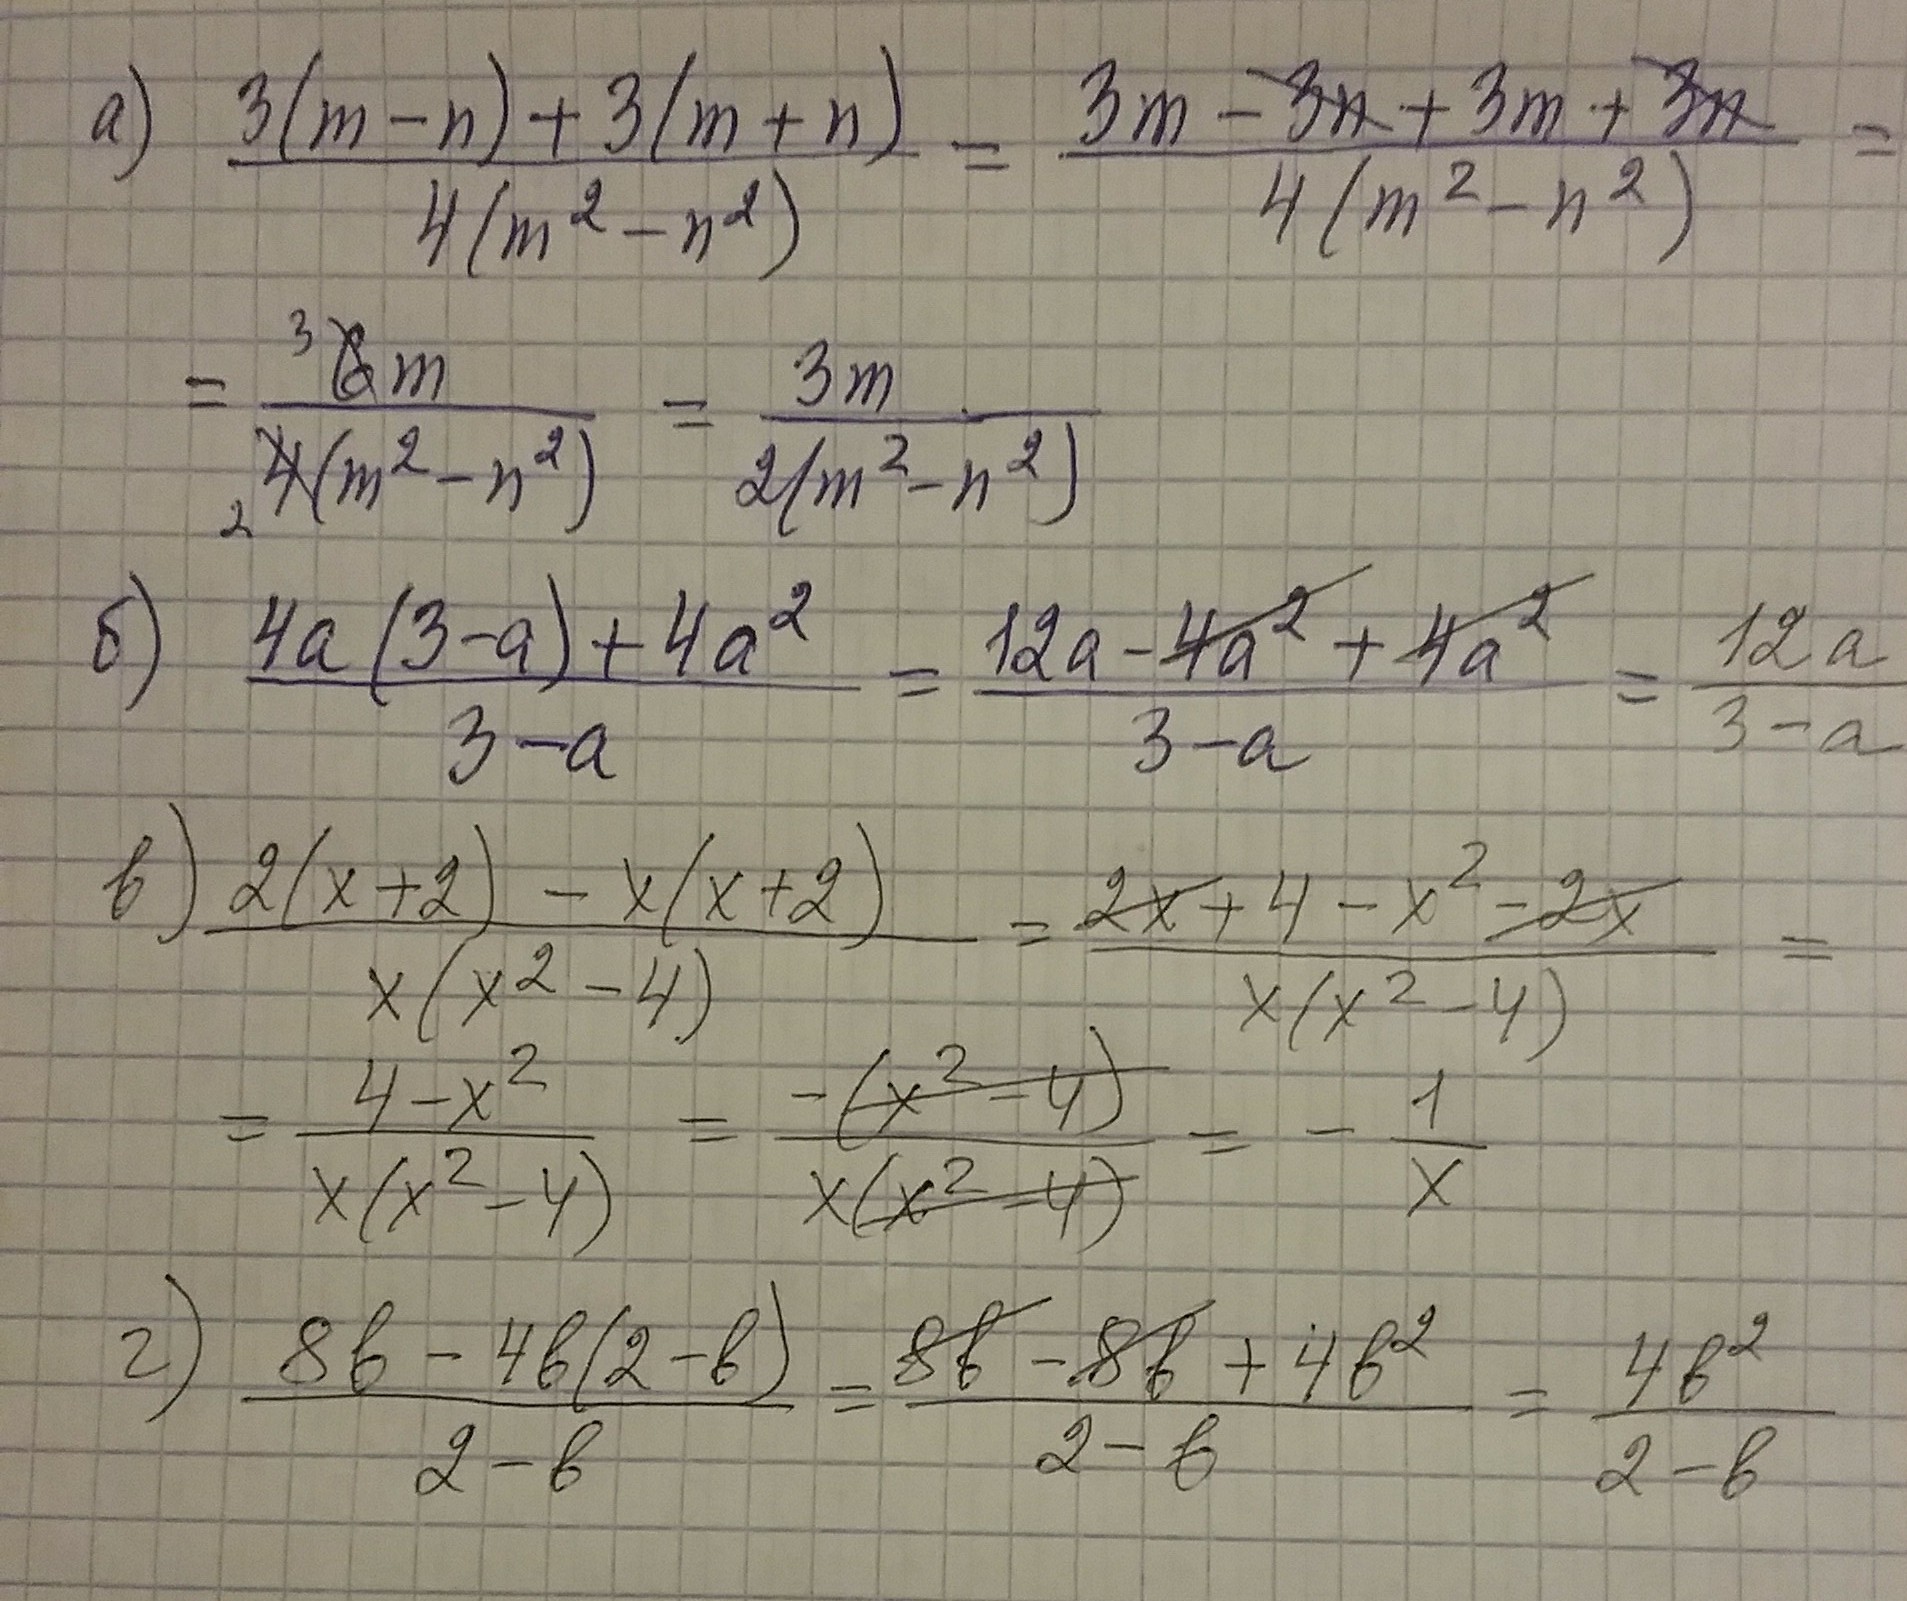 а) (3(m-n)+3(m+n))/(4(m²-n²)) = (3m-3n+3m+3n)/(4(m²-n²)) =
= ³6m/₂4(m²-n²) = 3m/(2(m²-n²))
б) (4a(3-a)+4a²)/(3-a) = (12a-4a²+4a²)/(3-a) = 12a/(3-a)
в) (2(x+2)-x(x+2))/(x(x²-4)) = (2x+4-x²-2x)/(x(x²-4)) =
= (4-x²)/(x(x²-4)) = -(x²-4)/(x(x²-4)) = -1/x
г) (8b-4b(2-b))/(2-b) = (8b-8b+4b²)/(2-b) = 4b²/(2-b)